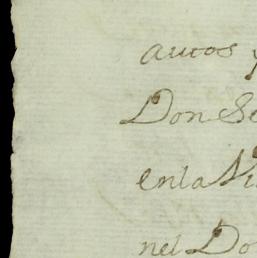 autos y
Don Se
enla Vi
nel Do